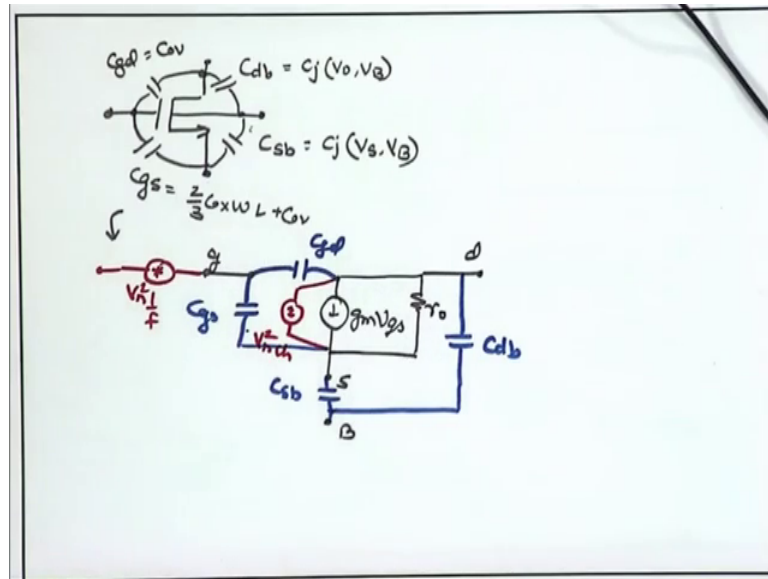 Cgd = Cov
Cdb = Cj (VD, VB)
Csb = Cj (VS, VB)
Cgs = 2/3 Cox W L + Cov
g
Cgd
d
Vn² 1/f
Cgs
Vn²ch
gmVgs
ro
Cdb
Csb
S
B